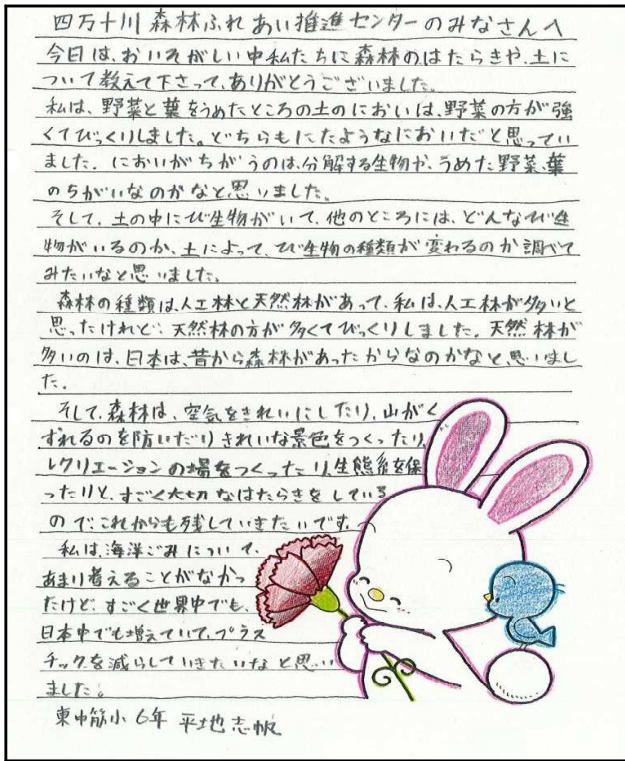 四万十川森林ふれあい推進センターのみなさんへ
今日は、おいそがしい中私たちに森林のはたらきや、土に
ついて教えて下さって、ありがとうございました。
私は、野菜と葉をうめたところの土のにおいは、野菜の方が強
くてびっくりしました。どちらもにたようなにおいだと思ってい
ました。においがちがうのは、分解する生物や、うめた野菜、葉
のちがいなのかなと思いました。
そして、土の中にび生物がいて、他のところには、どんなび生
物がいるのか、土によって、び生物の種類が変わるのか調べて
みたいなと思いました。
森林の種類は、人工林と天然林があって、私は、人工林が多いと
思ったけれど、天然林の方が多くてびっくりしました。天然林が
多いのは、日本は、昔から森林があったからなのかなと、思いまし
た。
そして、森林は、空気をきれいにしたり、山がく
ずれるのを防いだりきれいな景色をつくったり、
レクリエーションの場をつくったり、生態系を保
ったりと、すごく大切なはたらきをしている
ので、これからも残していきたいです。
私は、海洋ごみについて、
あまり考えることがなかっ
たけど、すごく世界中でも、
日本中でも増えていて、プラス
チックを減らしていきたいなと思い
ました。
東中筋小6年 平地志帆